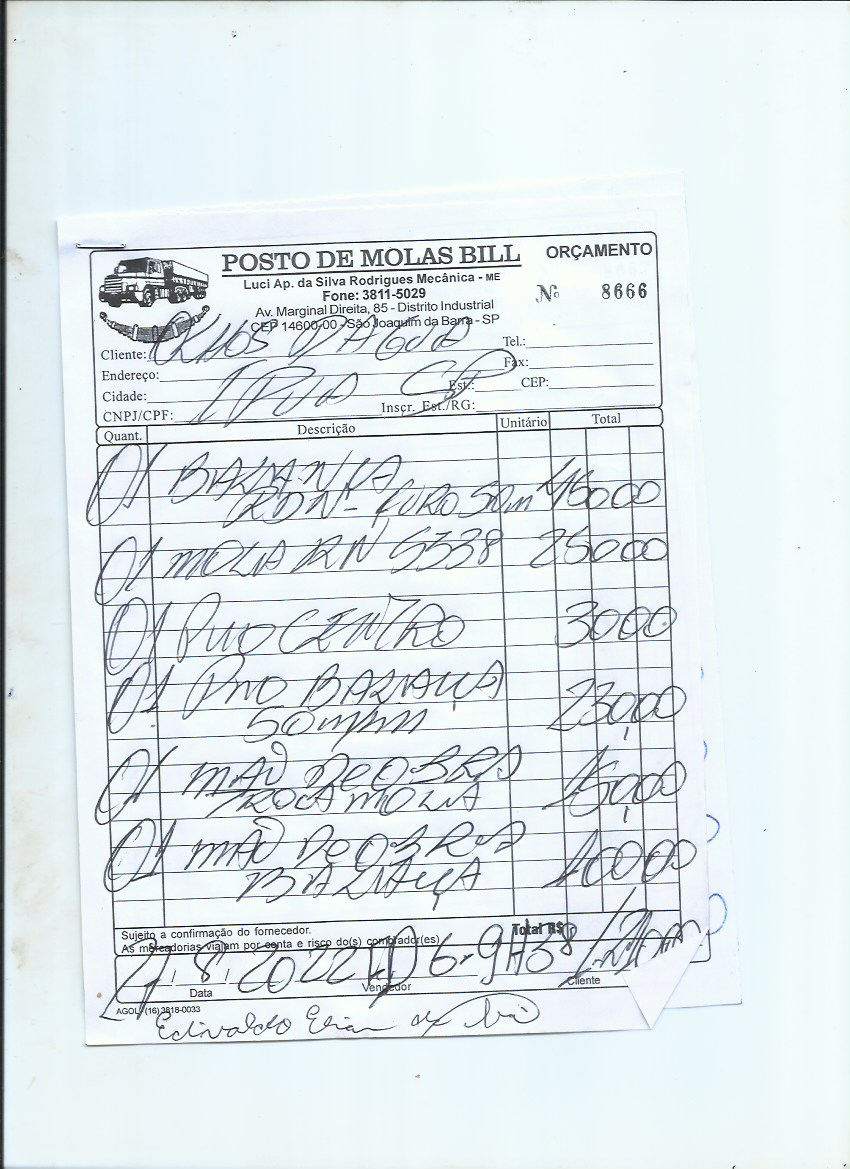 POSTO DE MOLAS BILL
ORÇAMENTO
Luci Ap. da Silva Rodrigues Mecânica - ME
Fone: 3811-5029
Nº 8666
Av. Marginal Direita, 85 - Distrito Industrial
CEP 14600-00 - São Joaquim da Barra - SP
Cliente: OLHOS D'AGUA Tel.:
Endereço: Fax:
Cidade: IPUA SP Est.: CEP:
CNPJ/CPF: Inscr. Est./RG:
Quant. Descrição Unitário Total
01 BALANÇA
RDN - FURO 50m 46000
01 MOLA RN 5338 25000
01 PINO CENTRO 3000
01 PINO BALANÇA 23,000
50mm
01 MAO DE OBRA
TROCA MOLA 15,000
01 MAO DE OBRA 10000
BALANÇA
Sujeito a confirmação do fornecedor.
As mercadorias viajam por conta e risco do(s) comprador(es)
Total R$
8 2022
Data Vendedor Cliente
AGOL - (16) 3818-0033
Edivaldo